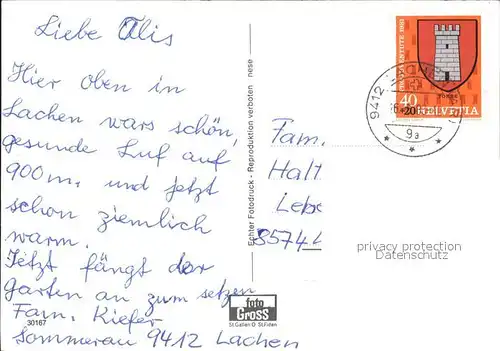 Liebe Alis
Hier oben in
Lachen wars schön,
gesunde Luf auf
900m. und jetzt
schon ziemlich
warm.
Jetzt fängt der
Garten an zum setzen
Fam. Kiefer
Sommerau 9412 Lachen
30167
Echter Fotodruck - Reproduktion verboten nese
foto
GROSS
St.Gallen O St.Fiden
PRO JUVENTUTE 1981
40
+20
HELVETIA
9412
9a
Fam.
Halt
Lebe
8574 L
privacy protection
Datenschutz